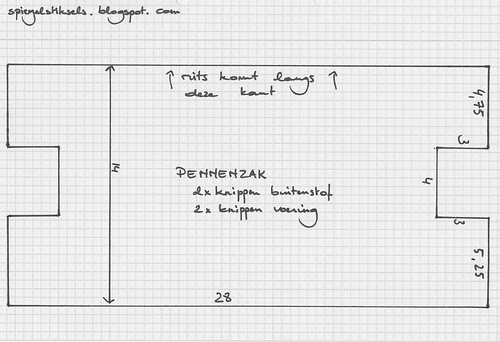 spiegelstiksels.blogspot.com
↑ rits komt langs ↑
deze kant
4,75
3
14
PENNENZAK
2x knippen buitenstof
2x knippen voering
4
3
5,25
28